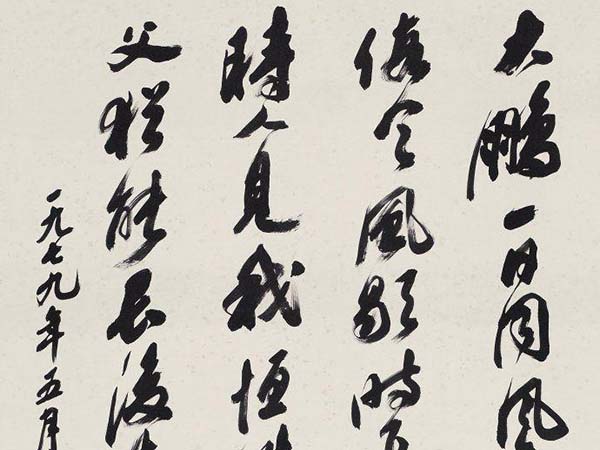 大鵬一日同風
假令風歇時
時人見我恒
父猶能畏後
一九七九年五月